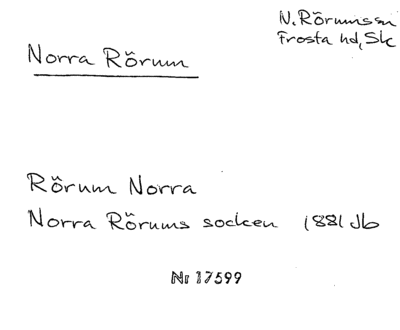 N. Rörums sn
Frosta hd, Sk
Norra Rörum
Rörum Norra
Norra Rörums socken 1881 Jb
Nr 17599